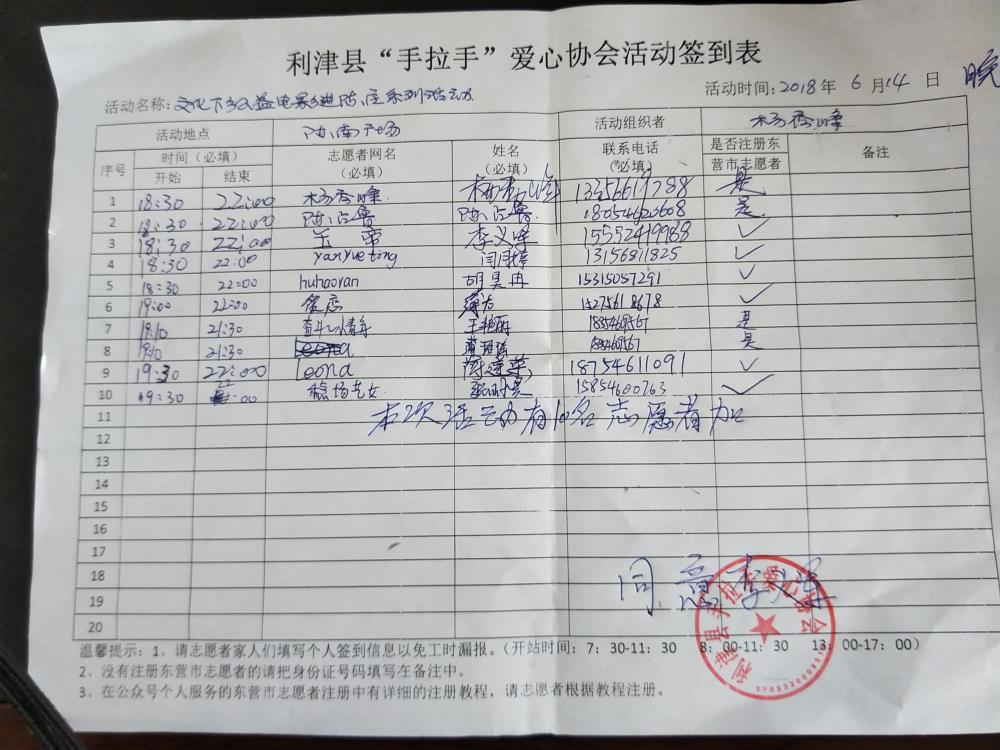 利津县“手拉手”爱心协会活动签到表
活动名称：文化下乡公益电影进陈庄系列活动 活动时间：2018年 6 月 14 日 晚
活动地点 陈南广场 活动组织者 杨秀峰
序号 时间（必填） 志愿者网名（必填） 姓名（必填） 联系电话（必填） 是否注册东营市志愿者 备注
开始 结束
1 18:30 22:00 杨秀峰 杨秀峰 是
2 18:30 22:00 陈占鲁 陈占鲁 18054620608 是
3 18:30 22:00 李义峰 15552419968 ✓
4 18:30 22:00 yanyueting 闫月婷 13156811825 ✓
5 18:30 22:00 huhaoran 胡昊冉 15315057291 ✓
6 19:00 22:00 15275618678 ✓
7 19:10 21:30 王艳丽 是
8 19:10 21:30 是
9 19:30 22:00 leona 18754611091 ✓
10 19:30 22:00 15854600763 ✓
11 本次活动有10名志愿者参加
12
13
14
15
16
17
18
19
20
同意 李义峰
利津县手拉手爱心协会
温馨提示：1、请志愿者家人们填写个人签到信息以免工时漏报。（开站时间：7：30-11：30 8：00-11：30 13：00-17：00）
2、没有注册东营市志愿者的请把身份证号码填写在备注中。
3、在公众号个人服务的东营市志愿者注册中有详细的注册教程，请志愿者根据教程注册。